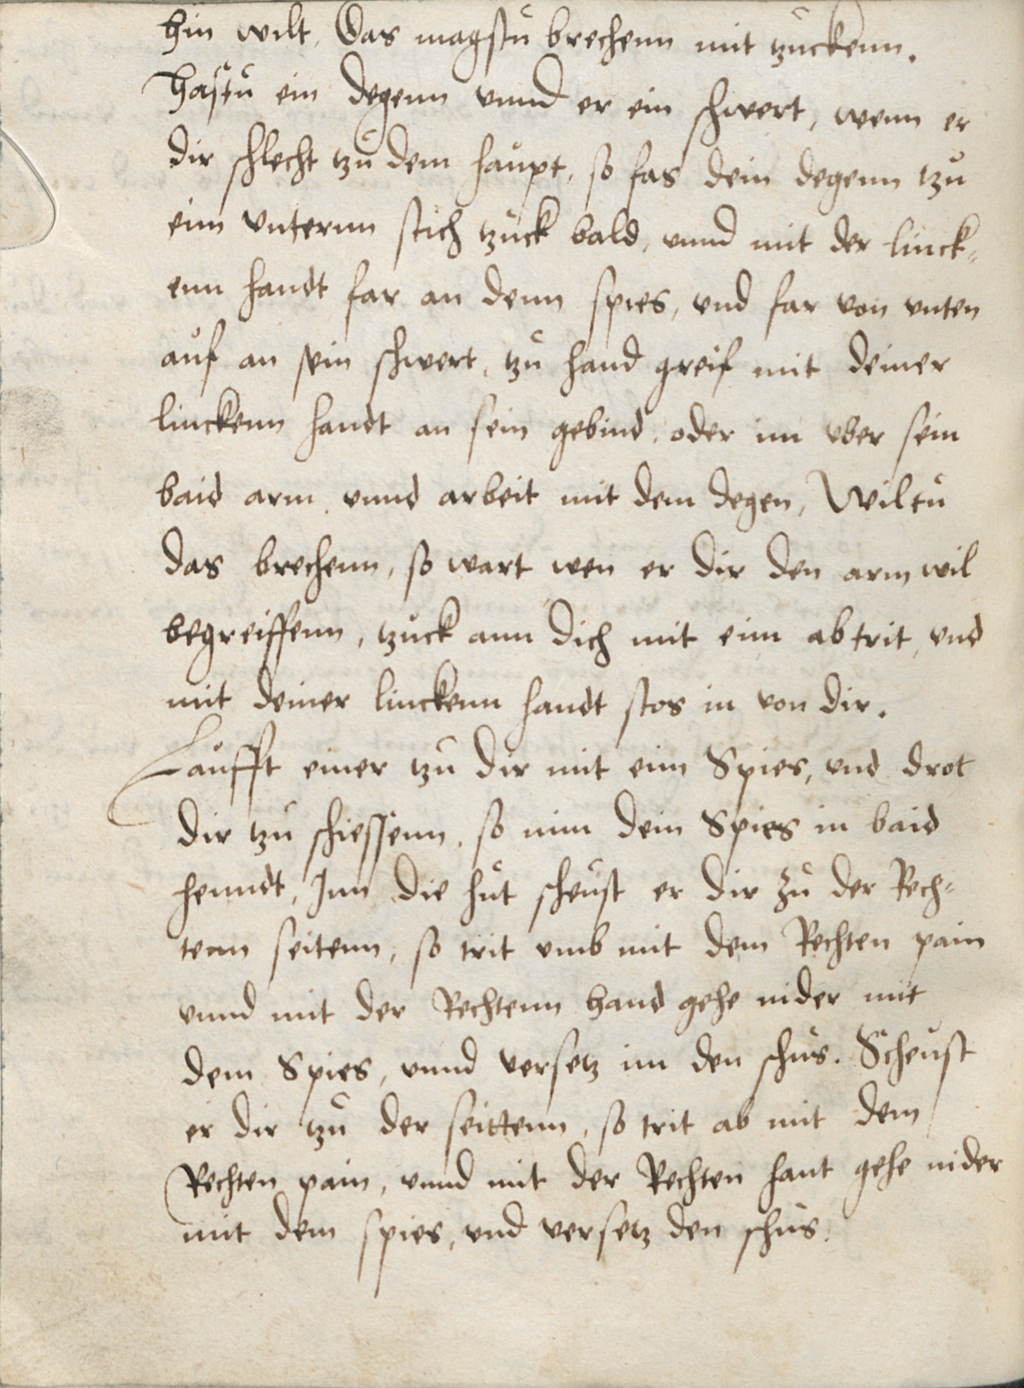 hin wilt, Das magstu brechenn mit tzuckenn.
Hastu ein degenn vnnd er ein schwert, wenn er
dir schlecht tzu dem haupt, so fas dein degenn tzu
eim vnternn stich tzuck bald, vnnd mit der linck=
enn handt far an denn spies, vnd far von vnten
auf an sein schwert, tzu hand greif mit deiner
linckenn handt an sein gebind, oder im vber sein
baid arm, vnnd arbeit mit dem degen, Wiltu
das brechenn, so wart wen er dir den arm wil
begreiffenn, tzuck ann dich mit eim abtrit, vnd
mit deiner linckenn handt stos in von dir.
Laufft einer tzu dir mit eim Spies, vnd drot
dir tzu schiessenn, so nim dein Spies in baid
henndt, Inn die hut scheust er dir zu der Rech=
tenn seitenn, so trit vmb mit dem Rechten pain
vnnd mit der Rechtenn hand gehe nider mit
dem Spies, vnnd versetz im den schus. Scheust
er dir tzu der seittenn, so trit ab mit dem
Rechten pain, vnnd mit der Rechten hant gehe nider
mit dem spies, vnd versetz den schus.